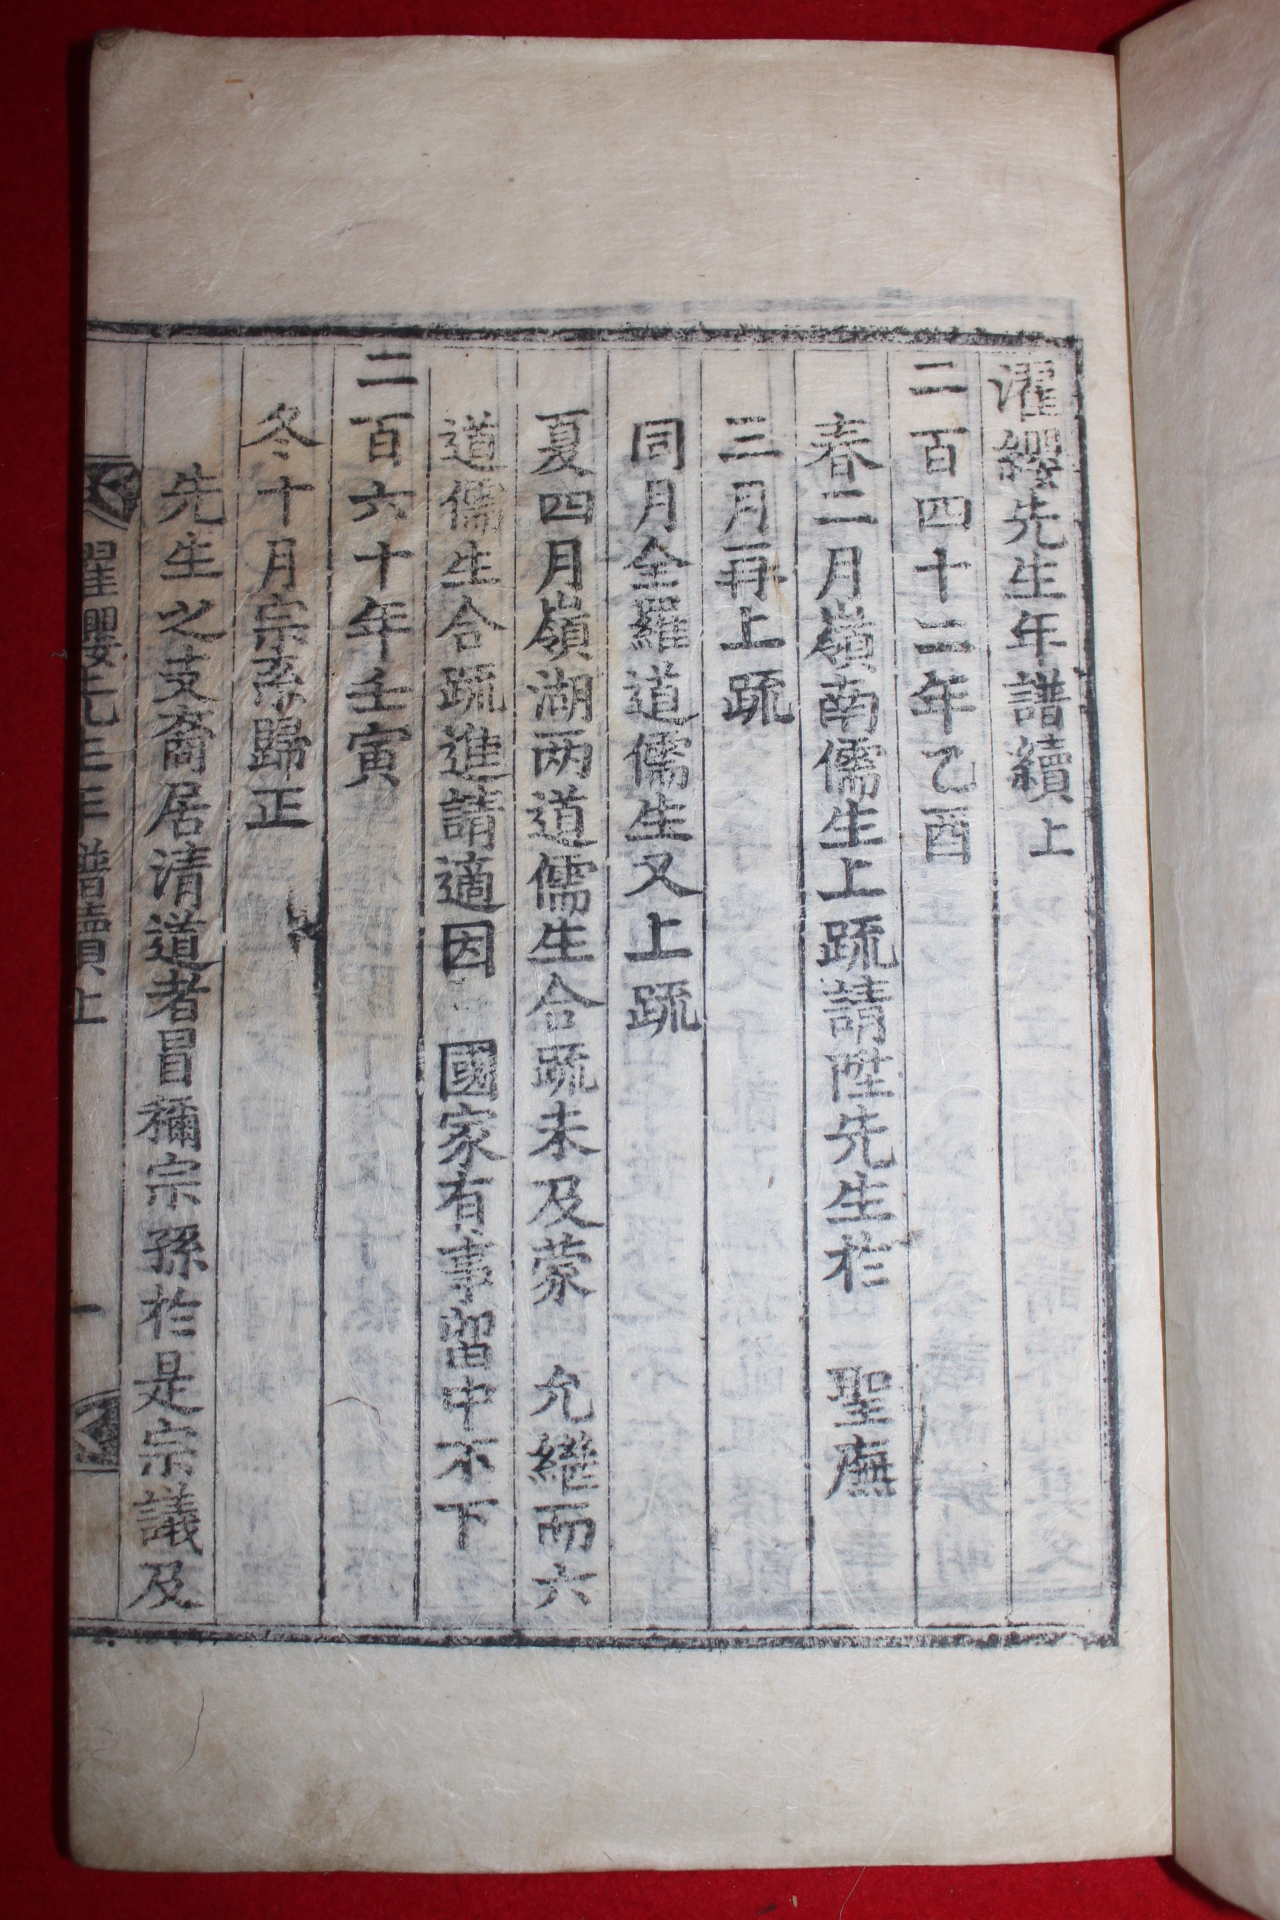 濯纓先生年譜續上
二百四十二年乙酉
春二月嶺南儒生上疏請陞先生於 聖廡
三月再上疏
同月全羅道儒生又上疏
夏四月嶺湖兩道儒生合疏未及蒙 允繼而六
道儒生合疏進請適因 國家有事留中不下
二百六十年壬寅
冬十月宗系歸正
先生之支裔居清道者冒稱宗孫於是宗議及
濯纓先生年譜續上
一